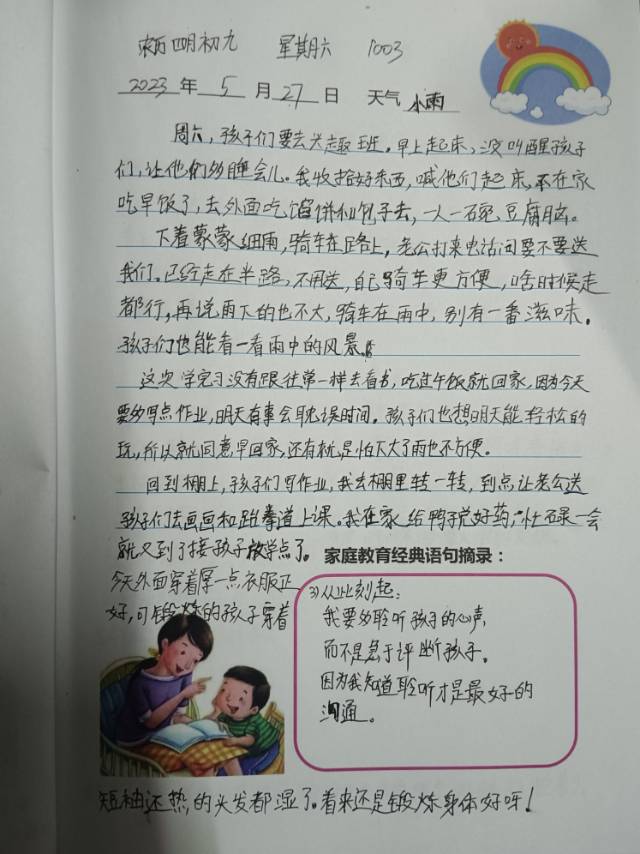 农历四月初九 星期六 1003
2023年5月27日 天气小雨
周六，孩子们要去兴趣班。早上起床，没叫醒孩子
们，让他们多睡会儿。我收拾好东西，喊他们起床，不在家
吃早饭了，去外面吃馅饼和包子去，一人一碗豆腐脑。
下着蒙蒙细雨，骑车在路上，老公打来电话问要不要送
我们。已经走在半路，不用送，自己骑车更方便，啥时候走
都行，再说雨下的也不大，骑车在雨中，别有一番滋味。
孩子们也能看一看雨中的风景。
这次学完习没有跟往常一样去看书，吃过午饭就回家，因为今天
要多写点作业，明天有事会耽误时间。孩子们也想明天能轻松的
玩，所以就同意早回家，还有就是怕下大了雨也不方便。
回到棚上，孩子们写作业，我去棚里转一转，到点让老公送
孩子们去画画和跆拳道上课。我在家给鸭子说好药，忙碌一会
就又到了接孩子放学点了。
家庭教育经典语句摘录：
今天外面穿着厚一点衣服正
好，可锻炼的孩子穿着
3)从此刻起：
我要多聆听孩子的心声，
而不是急于评断孩子。
因为我知道聆听才是最好的
沟通。
短袖还热的头发都湿了。看来还是锻炼身体好呀！